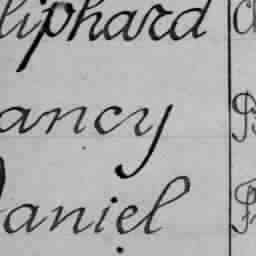 liphard
ancy
Daniel